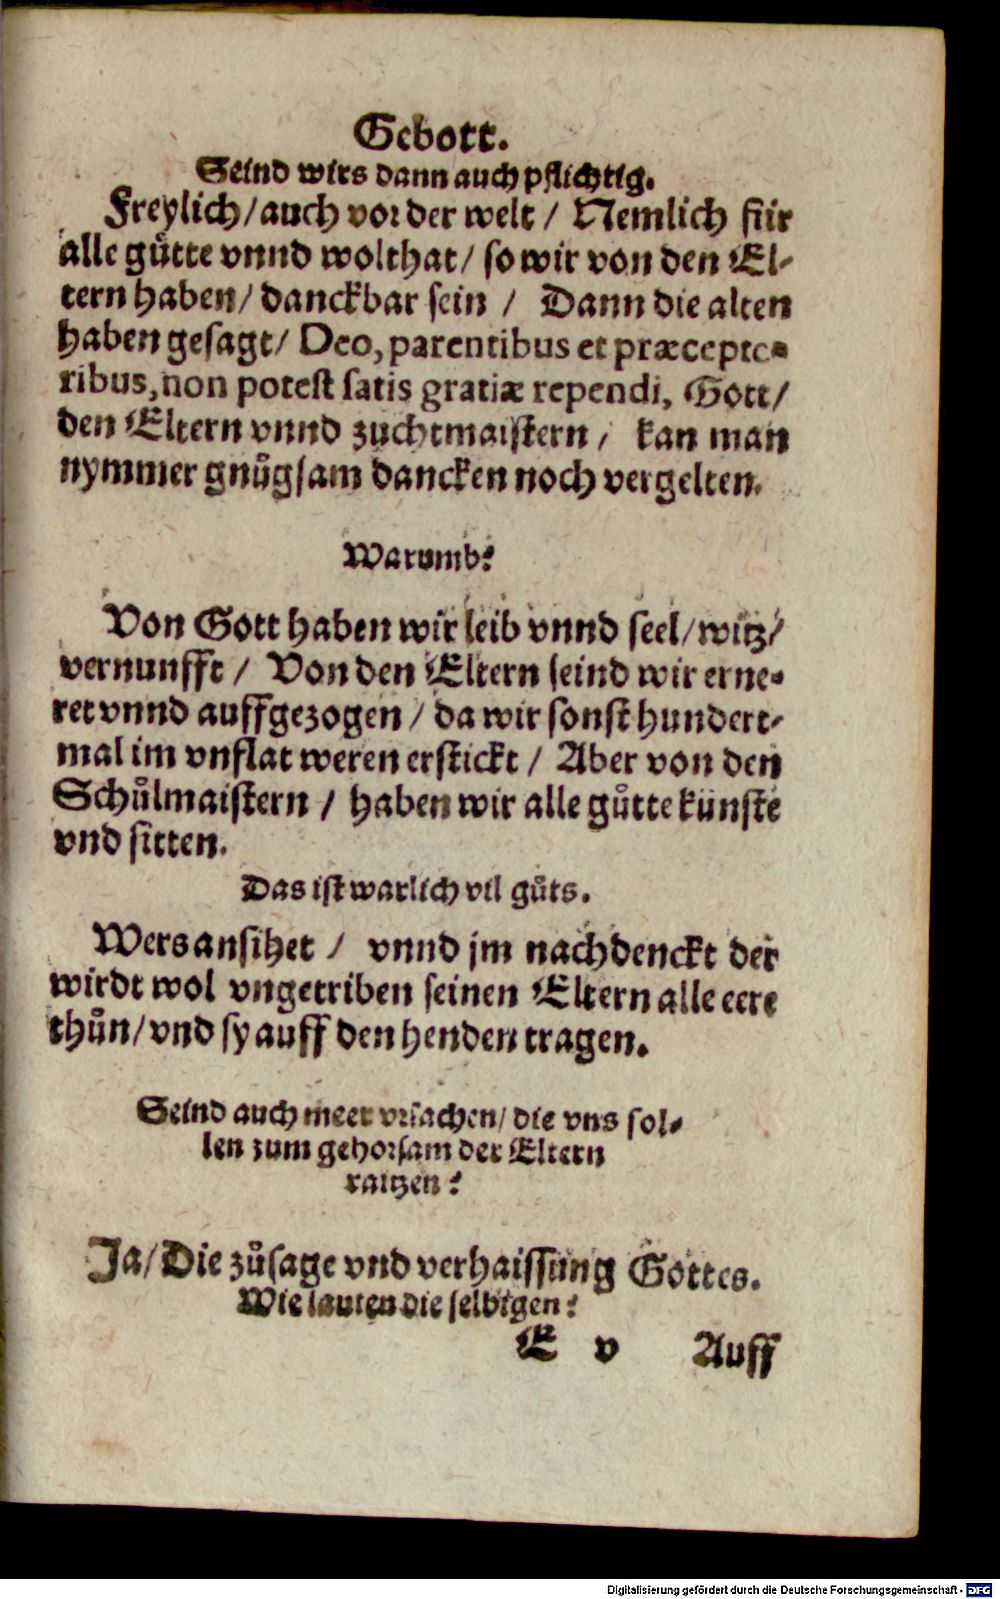 Gebott.
Seind wirs dann auch pflichtig.
Freylich/ auch vor der welt / Nemlich für
alle gůtte vnnd wolthat/ so wir von den El-
tern haben/ danckbar sein / Dann die alten
haben gesagt/ Deo, parentibus et præcepto-
ribus, non potest satis gratiæ rependi, Gott/
den Eltern vnnd zuchtmaistern / kan man
nymmer gnůgsam dancken noch vergelten.
Warumb?
Von Gott haben wir leib vnnd seel/ witz/
vernunfft / Von den Eltern seind wir erne-
ret vnnd auffgezogen / da wir sonst hundert-
mal im vnflat weren erstickt / Aber von den
Schůlmaistern / haben wir alle gůtte künste
vnd sitten.
Das ist warlich vil gůts.
Wers ansihet / vnnd jm nachdenckt der
wirdt wol vngetriben seinen Eltern alle eere
thůn/ vnd sy auff den henden tragen.
Seind auch meer vrsachen/ die vns sol-
len zum gehorsam der Eltern
raitzen?
Ja/ Die zůsage vnd verhaissung Gottes.
Wie lauten die selbigen?
E v Auff
Digitalisierung gefördert durch die Deutsche Forschungsgemeinschaft - DFG